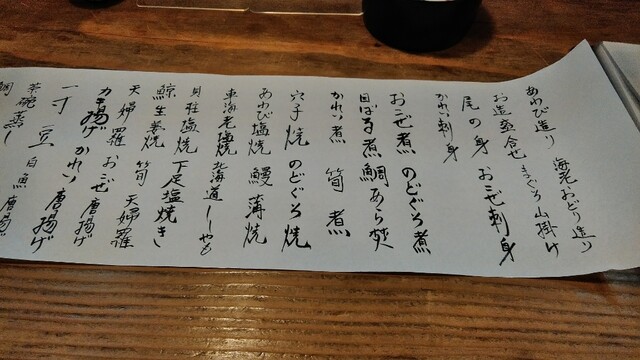 あわび造り 海老おどり造り
お造盛合せ まぐろ山掛け
尾の身 おこぜ刺身
かれい刺身
おこぜ煮 のどぐろ煮
目ばる煮 鯛あら焚
かれい煮 筍煮
穴子焼 のどぐろ焼
あわび塩焼 鰻蒲焼
車海老塩焼 北海道ししゃも
貝柱塩焼 下足塩焼き
鯨生姜焼 筍天婦羅
天婦羅 おこぜ唐揚げ
カキ揚げ かれい唐揚げ
一寸豆 白魚唐揚げ
茶碗蒸し
鯛